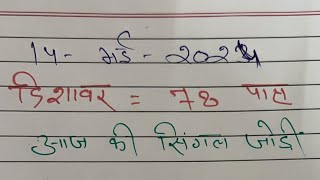 14 - मई - 2024
दिशावर = 78 पास
आज की सिंगल जोड़ी